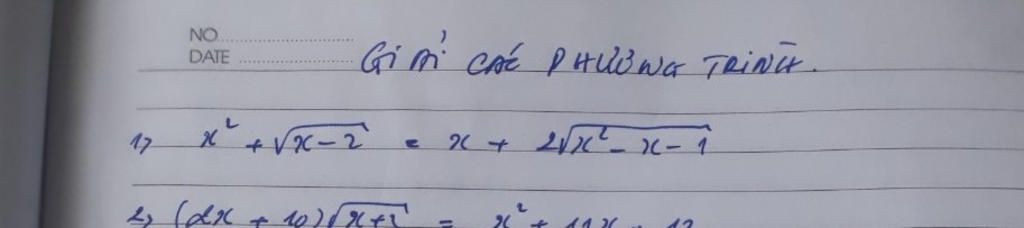 NO
DATE
GIẢI CÁC PHƯƠNG TRÌNH.
1) x² + √(x-2) = x + 2√(x² - x - 1)
2) (2x + 10)√ = x² +